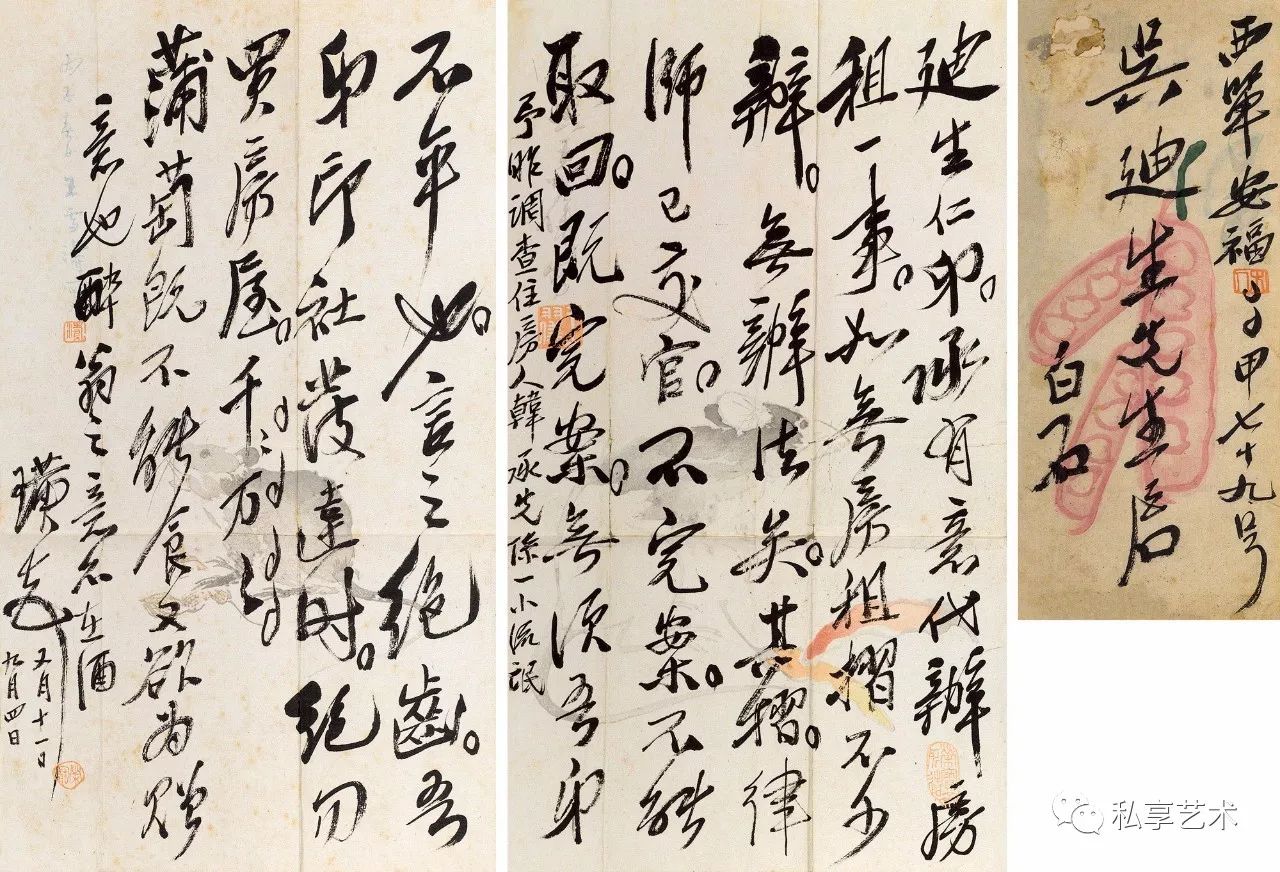 西單安福甲七十九号
吳迪生先生启
白石
迪生仁弟承有意代辦房
租一事。如無房租摺不少
辦。無辦法矣。其摺。律
師已交官。不完案。不能
取回。既完案。無須吾弟
予昨调查住房人韓承先係一小流氓
不平也。言之絕齒。吾
弟印社發達时。絕勿
買房屋。千〻万〻
蒲萄既不能食又欲为贈
意也醉翁之意不在酒
璜
又月十一日
九月四日
私享艺术